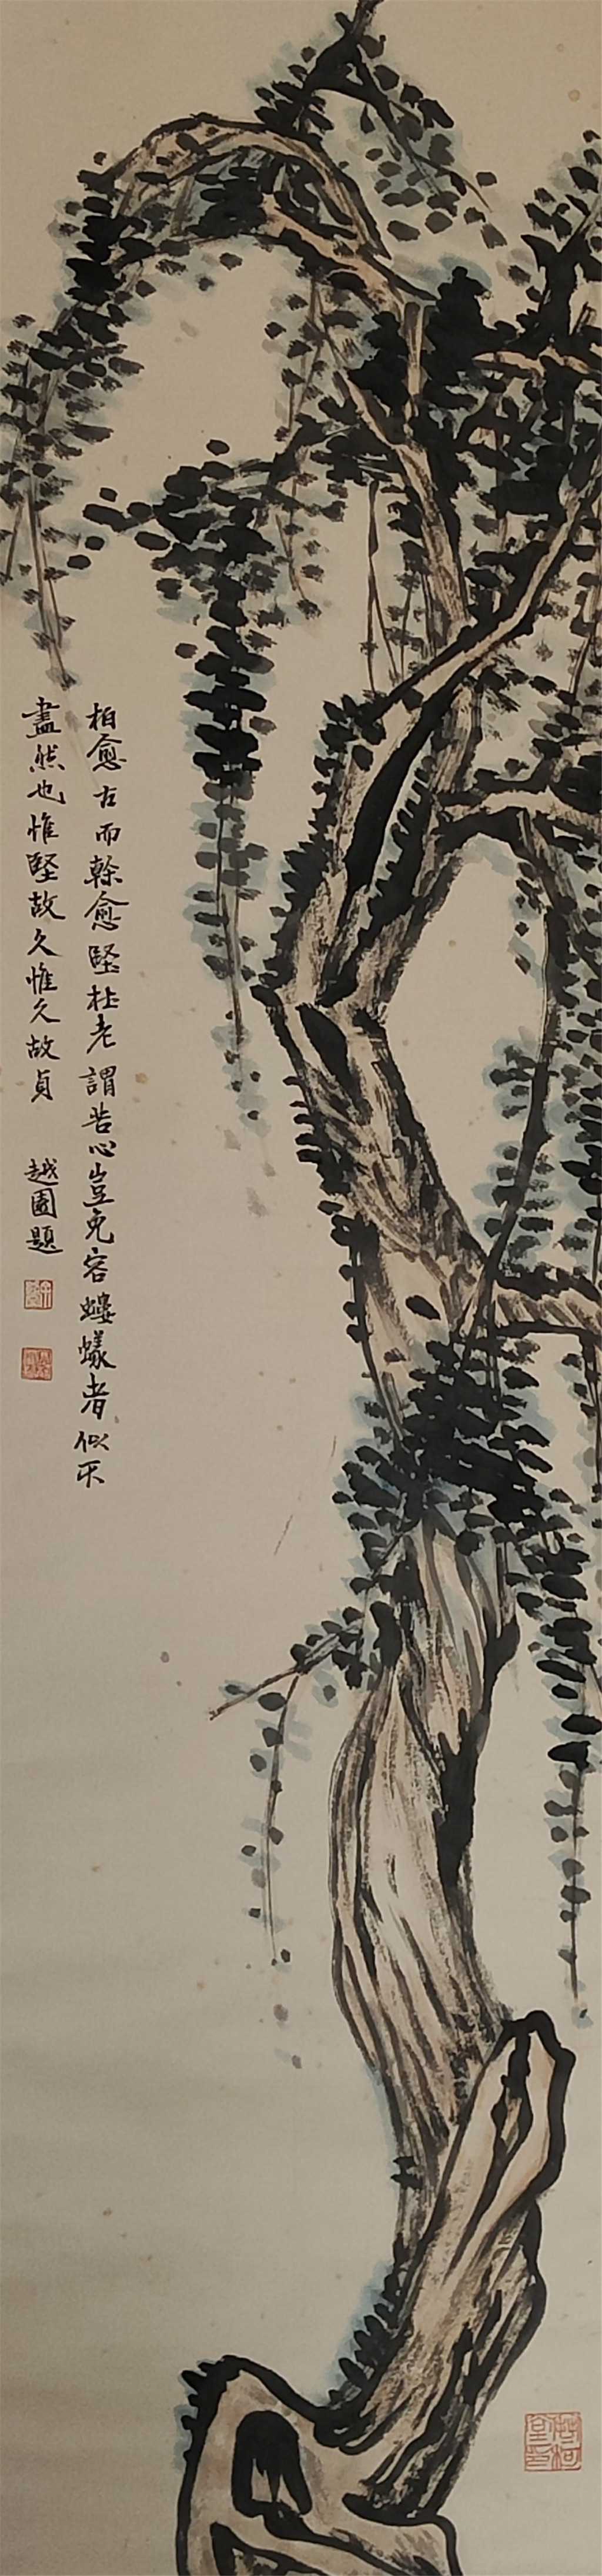 柏愈古而榦愈堅杜老謂苦心豈免容螻蟻者似不
盡然也惟堅故久惟久故貞 越園題